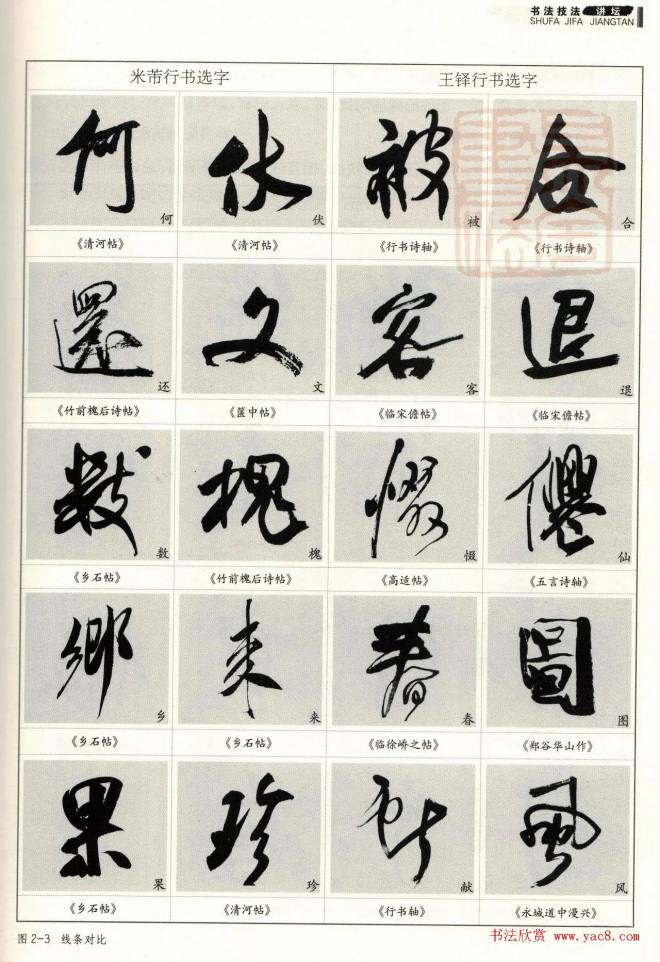 书法技法 讲坛
SHUFA JIFA JIANGTAN
米芾行书选字 王铎行书选字
何 伏 被 合
《清河帖》 《清河帖》 《行书诗轴》 《行书诗轴》
还 文 客 退
《竹前槐后诗帖》 《箧中帖》 《临宋儋帖》 《临宋儋帖》
数 槐 惙 仙
《乡石帖》 《竹前槐后诗帖》 《高适帖》 《五言诗轴》
乡 来 春 图
《乡石帖》 《乡石帖》 《临徐峤之帖》 《郑谷华山作》
果 珍 献 风
《乡石帖》 《清河帖》 《行书轴》 《永城道中漫兴》
图 2-3 线条对比
书法欣赏 www.yac8.com